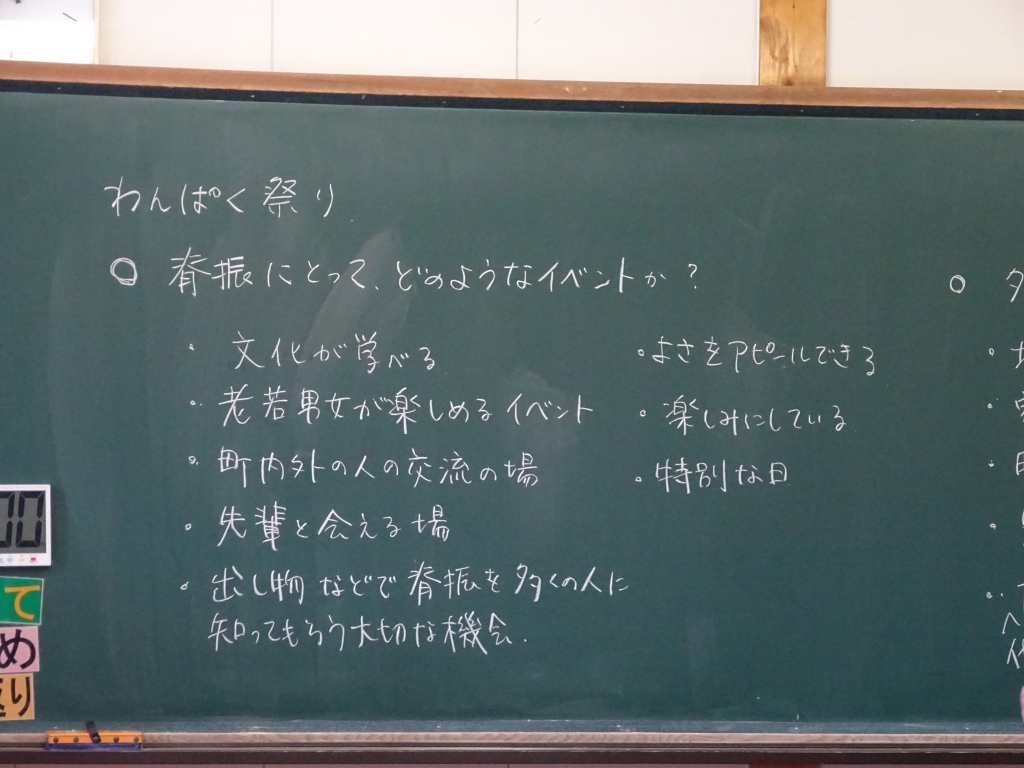 わんぱく祭り
○ 脊振にとって、どのようなイベントか?
・文化が学べる
・老若男女が楽しめるイベント
・町内外の人の交流の場
・先輩と会える場
・出し物などで脊振を多くの人に
知ってもらう大切な機会.
・よさをアピールできる
・楽しみにしている
・特別な日
○
00
て
め
り